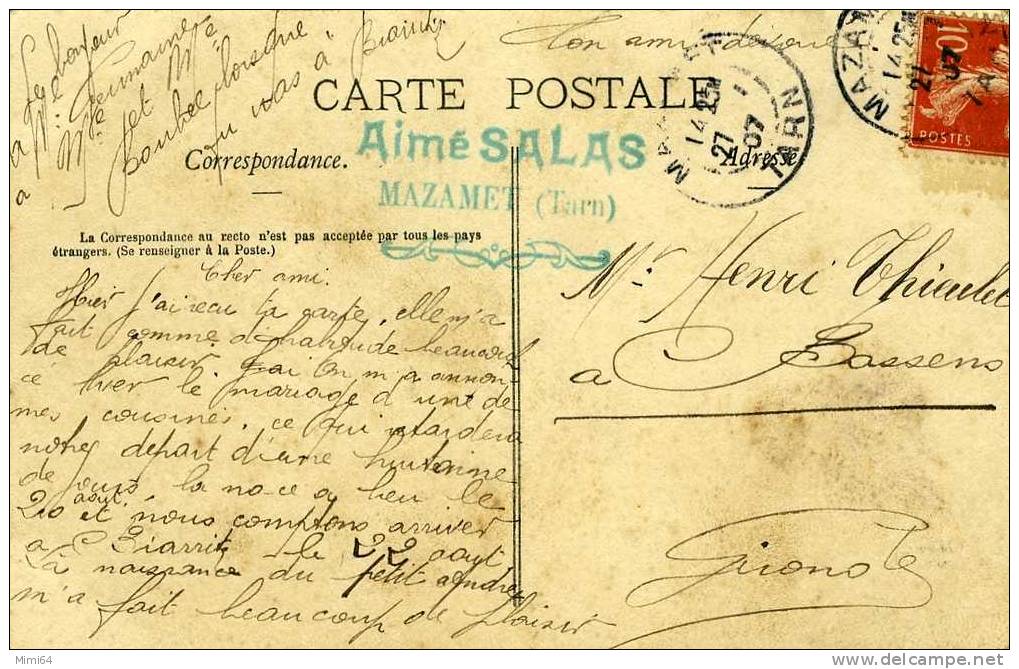 Ton ami dévoué
CARTE POSTALE
Aimé SALAS
MAZAMET (Tarn)
Correspondance.
Adresse
La Correspondance au recto n'est pas acceptée par tous les pays
étrangers. (Se renseigner à la Poste.)
MAZAMET
TARN
14 25
27
07
MAZAM
14 25
27
07
10
POSTES
à Mr
Mme Germaine
et Mle
à
vu
pas à Biarritz
Cher ami.
Hier j'ai reçu ta carte, elle m'a
fait comme d'habitude beaucoup
de plaisir. On m'a annon
cé hier le mariage d'une de
mes cousines, ce qui retardera
notre départ d'une huitaine
de jours, la noce a lieu le
20 août et nous comptons arriver
a Biarritz le 22 août
La naissance du petit
m'a fait beaucoup de plaisir
Mr Henri Thieulet
a Bassens
Gironde
Mimi64
delcampe.net